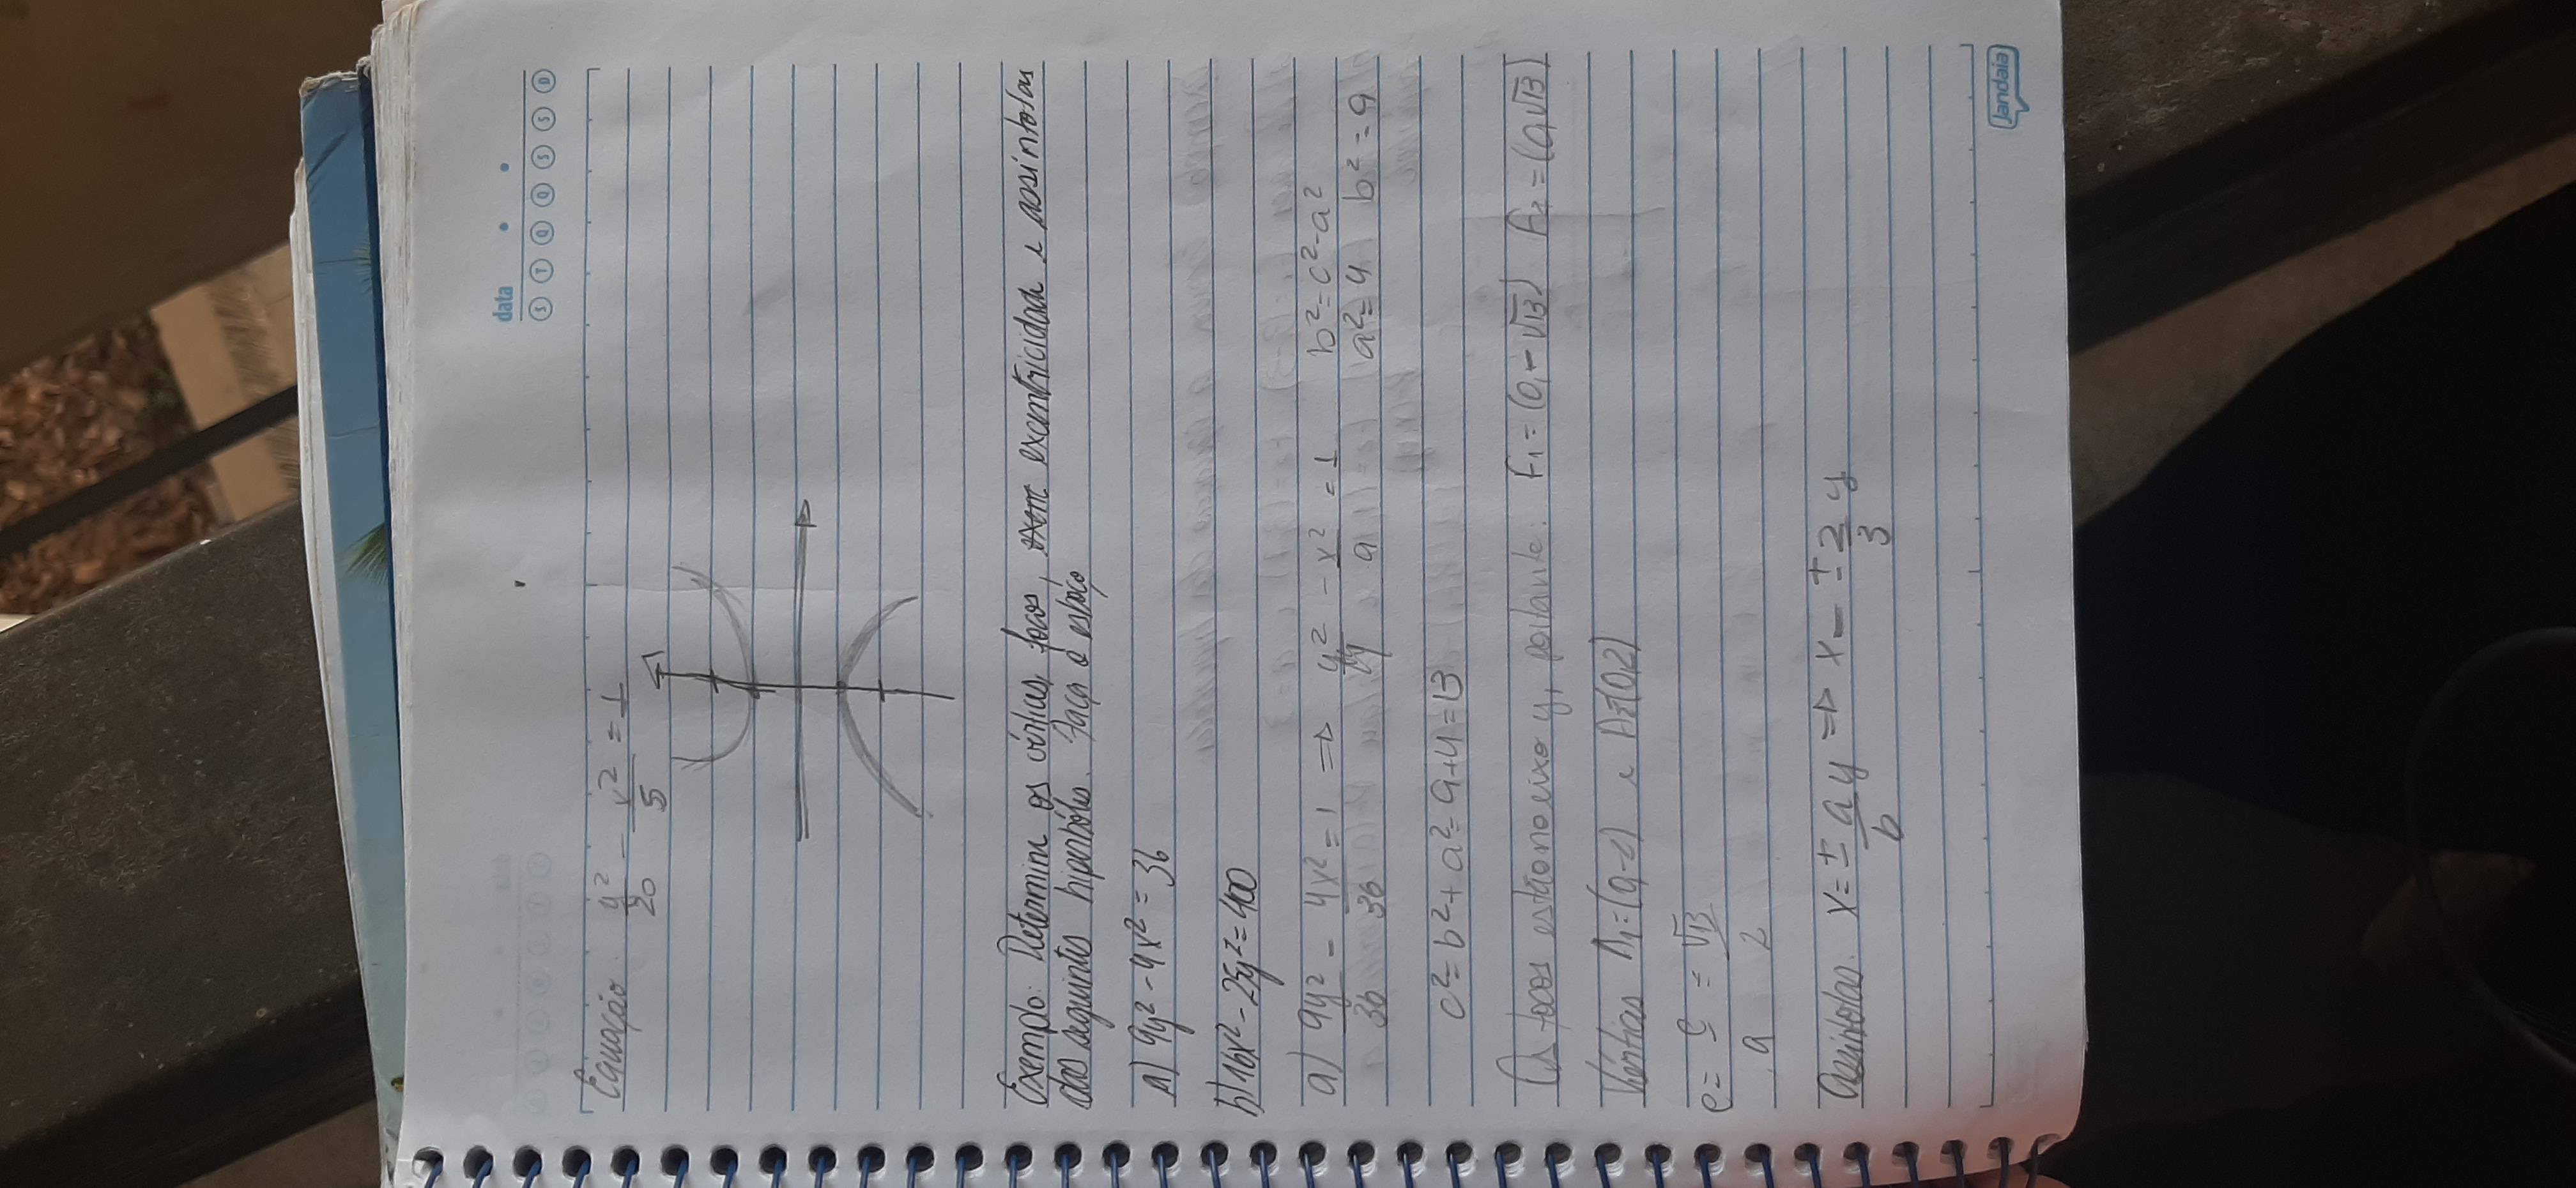 data
S T Q Q S S D
Equação. y²/20 - x²/5 = 1
Exemplo: Determine os vértices, focos, exene excentricidade e assintotas
das seguintes hipérboles. Faça o esboço
a) 9y² - 4x² = 36
b) 16x² - 25y² = 400
a) 9y²/36 - 4x²/36 = 1 ⇒ y²/4 - x²/9 = 1 b² = c² - a²
a² = 4 b² = 9
c² = b² + a² = 9 + 4 = 13
Os focos estão no eixo y, portanto: F₁ = (0, -√13) F₂ = (0, √13)
Vértices A₁ = (0, -2) e A₂ = (0, 2)
e = c/a = √13/2
Assintotas. x = ± a/b y ⇒ x = ± 2/3 y
Jandaia